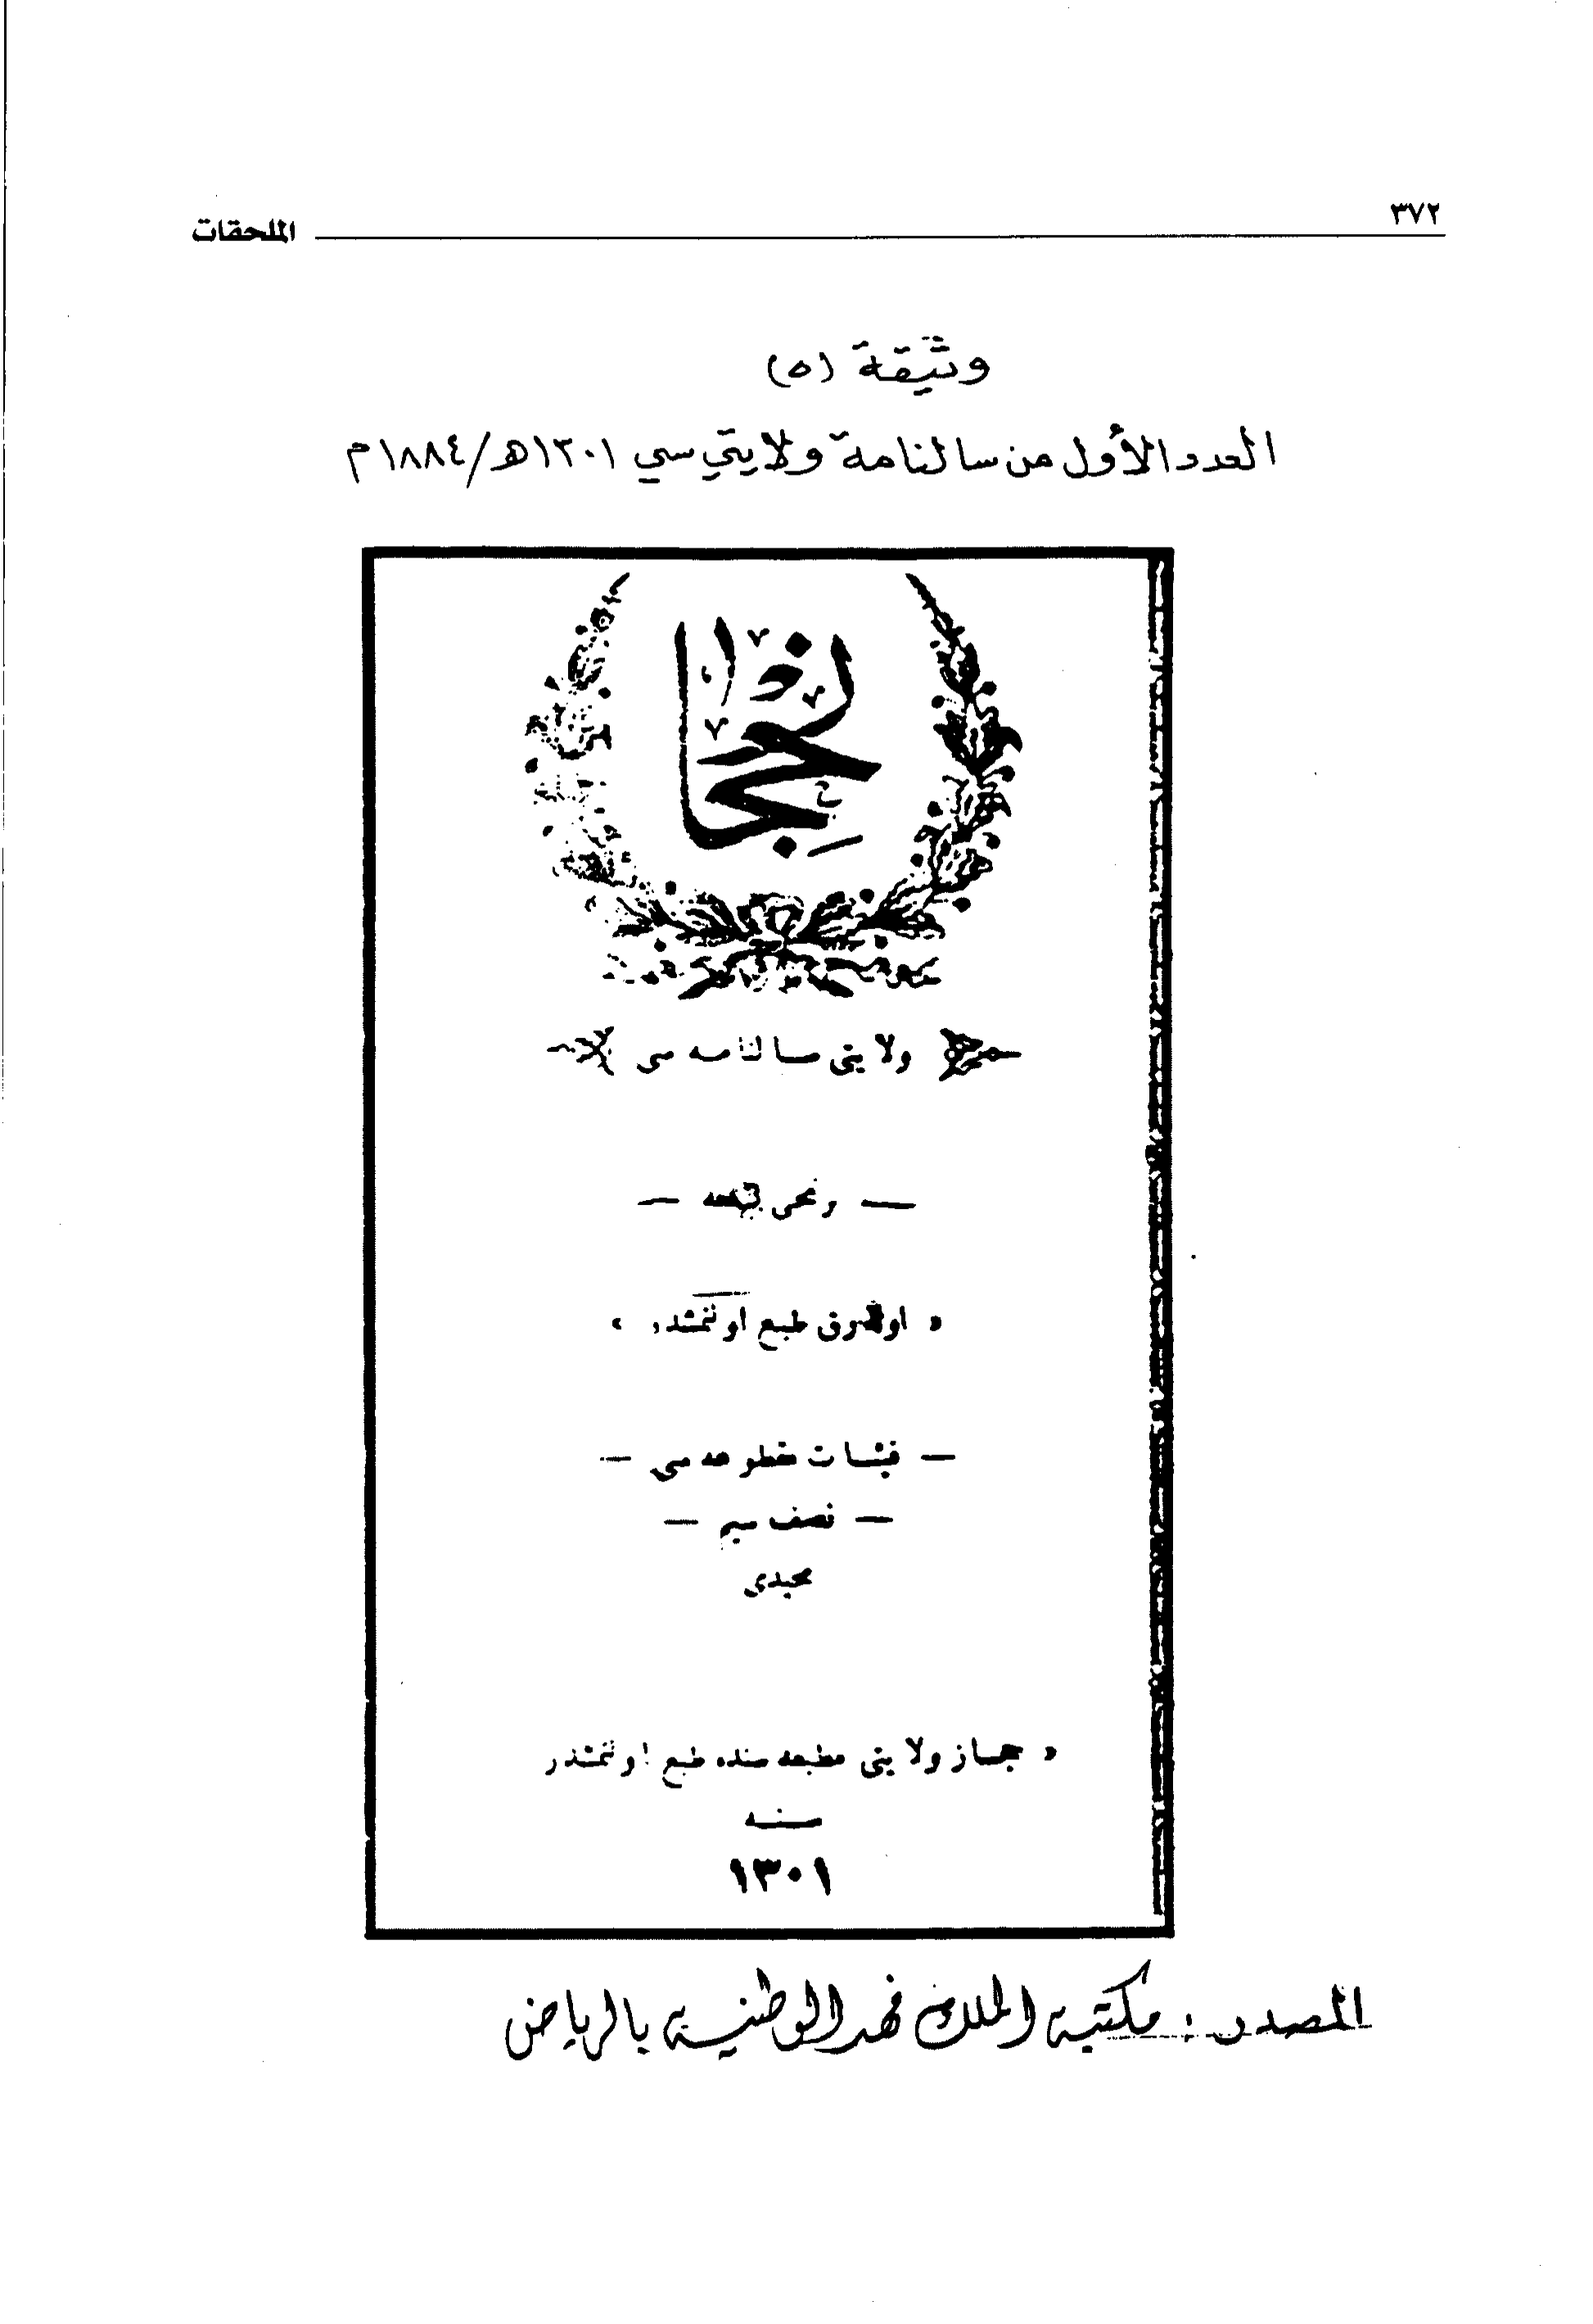 ٣٧٢
الملحقات
وثيقة (٥)
العدد الأول من سالنامة ولايتي سي ١٣٠١هـ/١٨٨٤م
ولايتى سالنامه سى
— دفعه —
« اوله‌رق طبع اولنمشدر »
— فيئات مقطوعه سى —
— نصف سيم —
مجيدى
« حجاز ولايتى مطبعه سنده طبع اولنمشدر
سنه
١٣٠١
المصدر : مكتبة الملك فهد الوطنية بالرياض